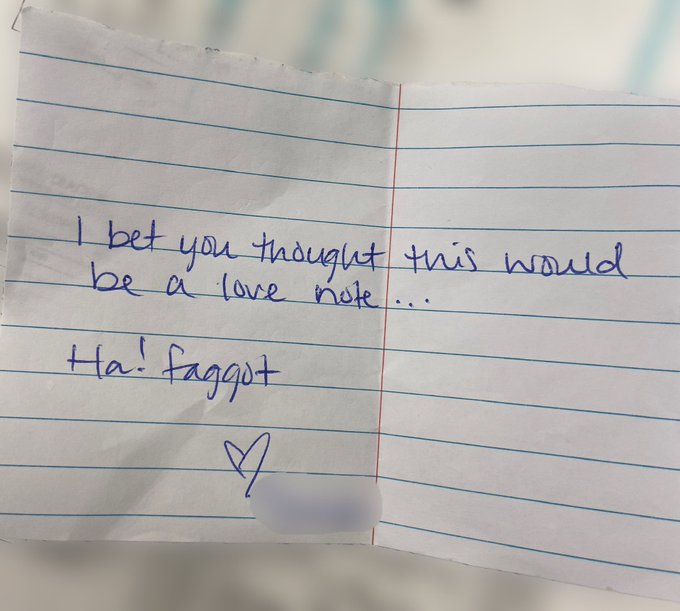 I bet you thought this would
be a love note...
Ha! faggot